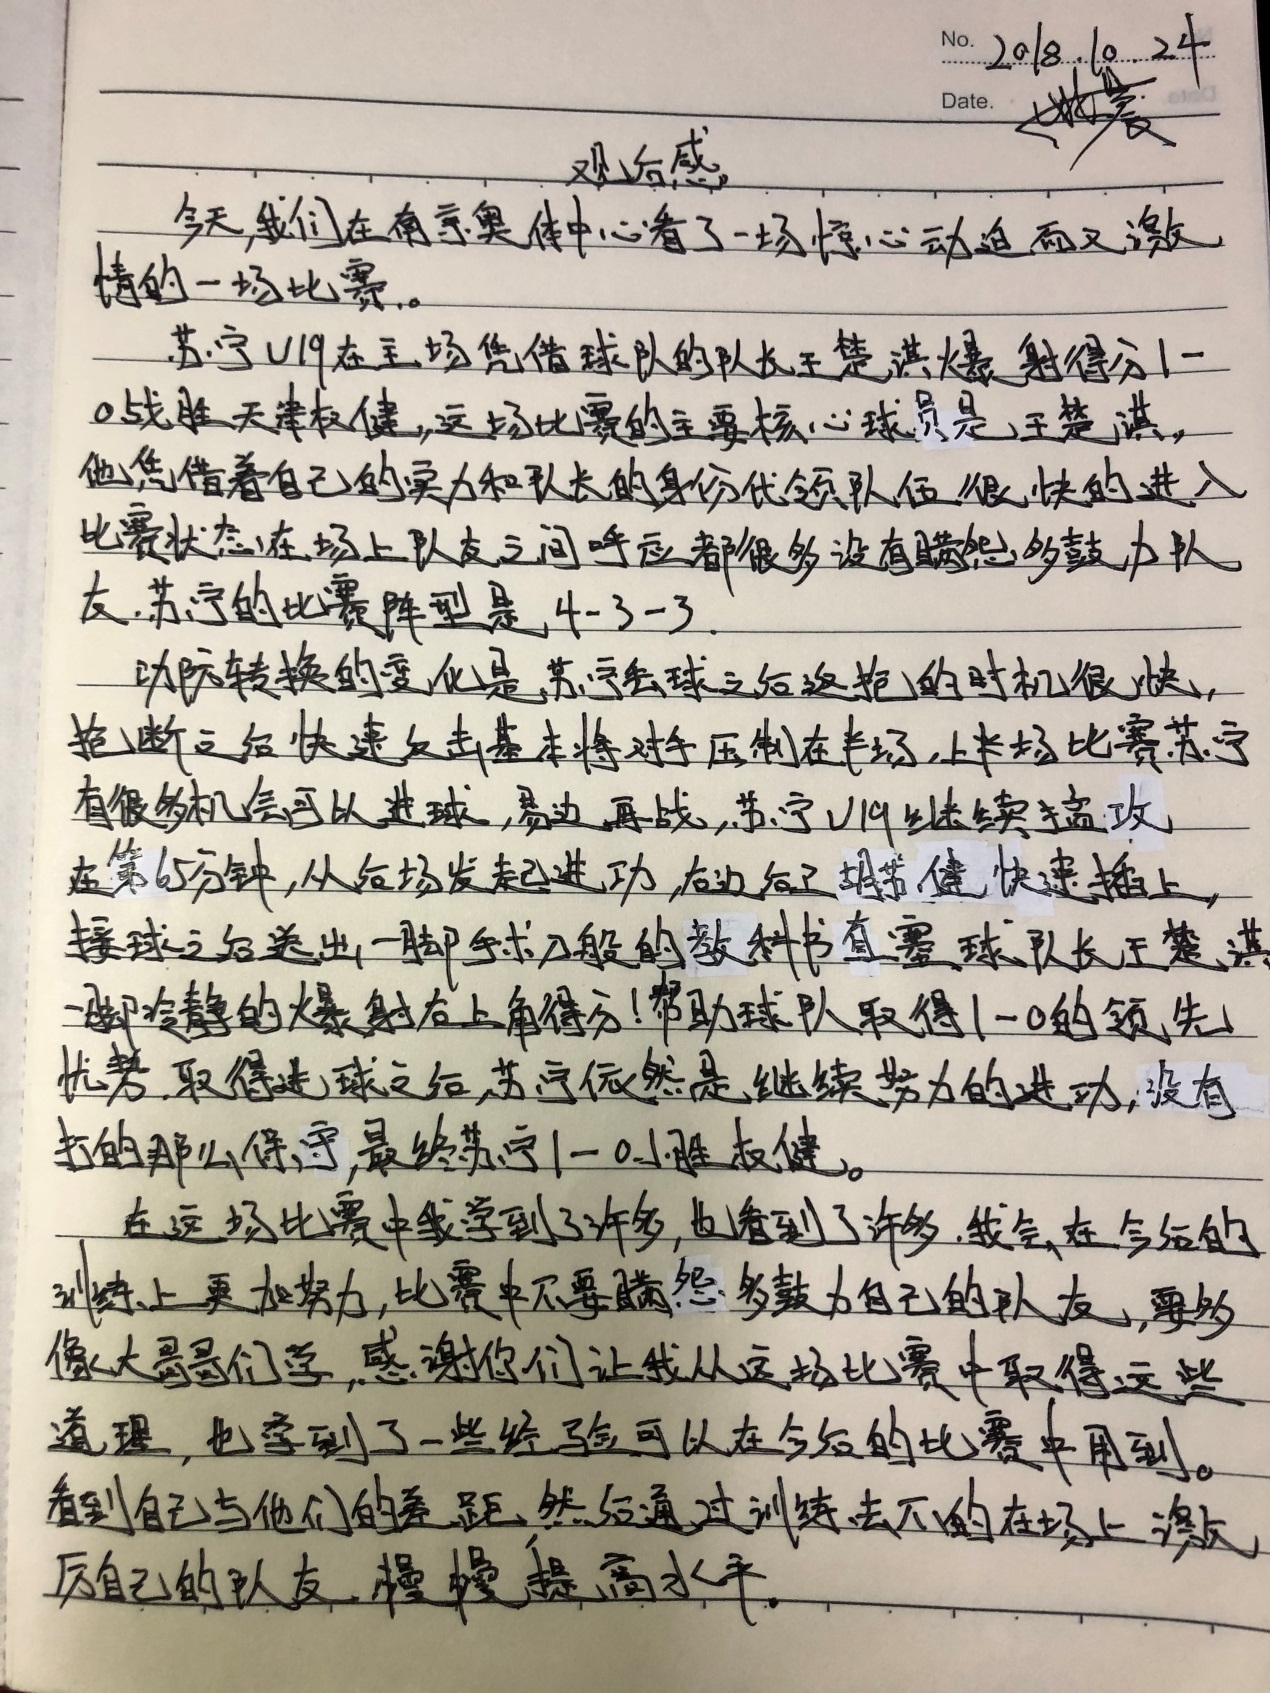 No. 2018.10.24
Date.
观后感
今天,我们在南京奥体中心看了一场惊心动迫而又激
情的一场比赛.。
苏宁U19在主场凭借球队的队长王楚淇爆射得分1-
0战胜天津权健,这场比赛的主要核心球员是王楚淇,
他凭借着自己的实力和队长的身份代领队伍很快的进入
比赛状态,在场上队友之间呼应都很多没有瞒怨多鼓力队
友.苏宁的比赛阵型是4-3-3.
功防转换的变化是苏宁丢球之后逆抢的时机很快,
抢断之后快速反击基本将对手压制在半场,上半场比赛苏宁
有很多机会可以进球,易边再战,苏宁U19继续猛攻
在第65分钟,从后场发起进功,右边后卫胡若健快速插上,
接球之后送出一脚手术刀般的教科书直塞球队长王楚淇
一脚冷静的爆射右上角得分!帮助球队取得1-0的领先
优势.取得进球之后,苏宁依然是继续努力的进功,没有
打的那么保守,最终苏宁1-0小胜权健。
在这场比赛中我学到了许多,也看到了许多.我会在今后的
训练上更加努力,比赛中不要瞒怨多鼓力自己的队友,要多
像大哥哥们学,感谢你们让我从这场比赛中取得这些
道理,也学到了一些经验可以在今后的比赛中用到。
看到自己与他们的差距,然后通过训练去不的在场上激
厉自己的队友.慢慢提高水平.